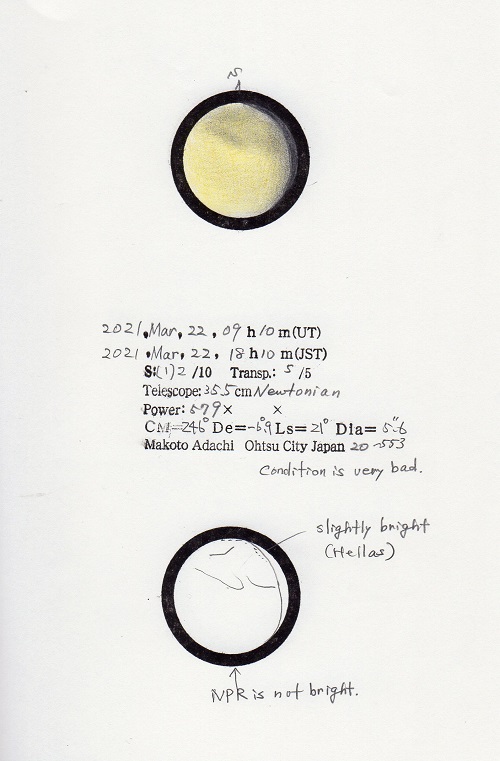 S
2021, Mar, 22, 09 h 10 m (UT)
2021, Mar, 22, 18 h 10 m (JST)
S:(1)2 /10 Transp.: 5 /5
Telescope: 355 cm Newtonian
Power: 579 × ×
CM=246° De=-6°9 Ls=21° Dia= 5"6
Makoto Adachi Ohtsu City Japan 20-553
Condition is very bad.
slightly bright
(Hellas)
NPR is not bright.